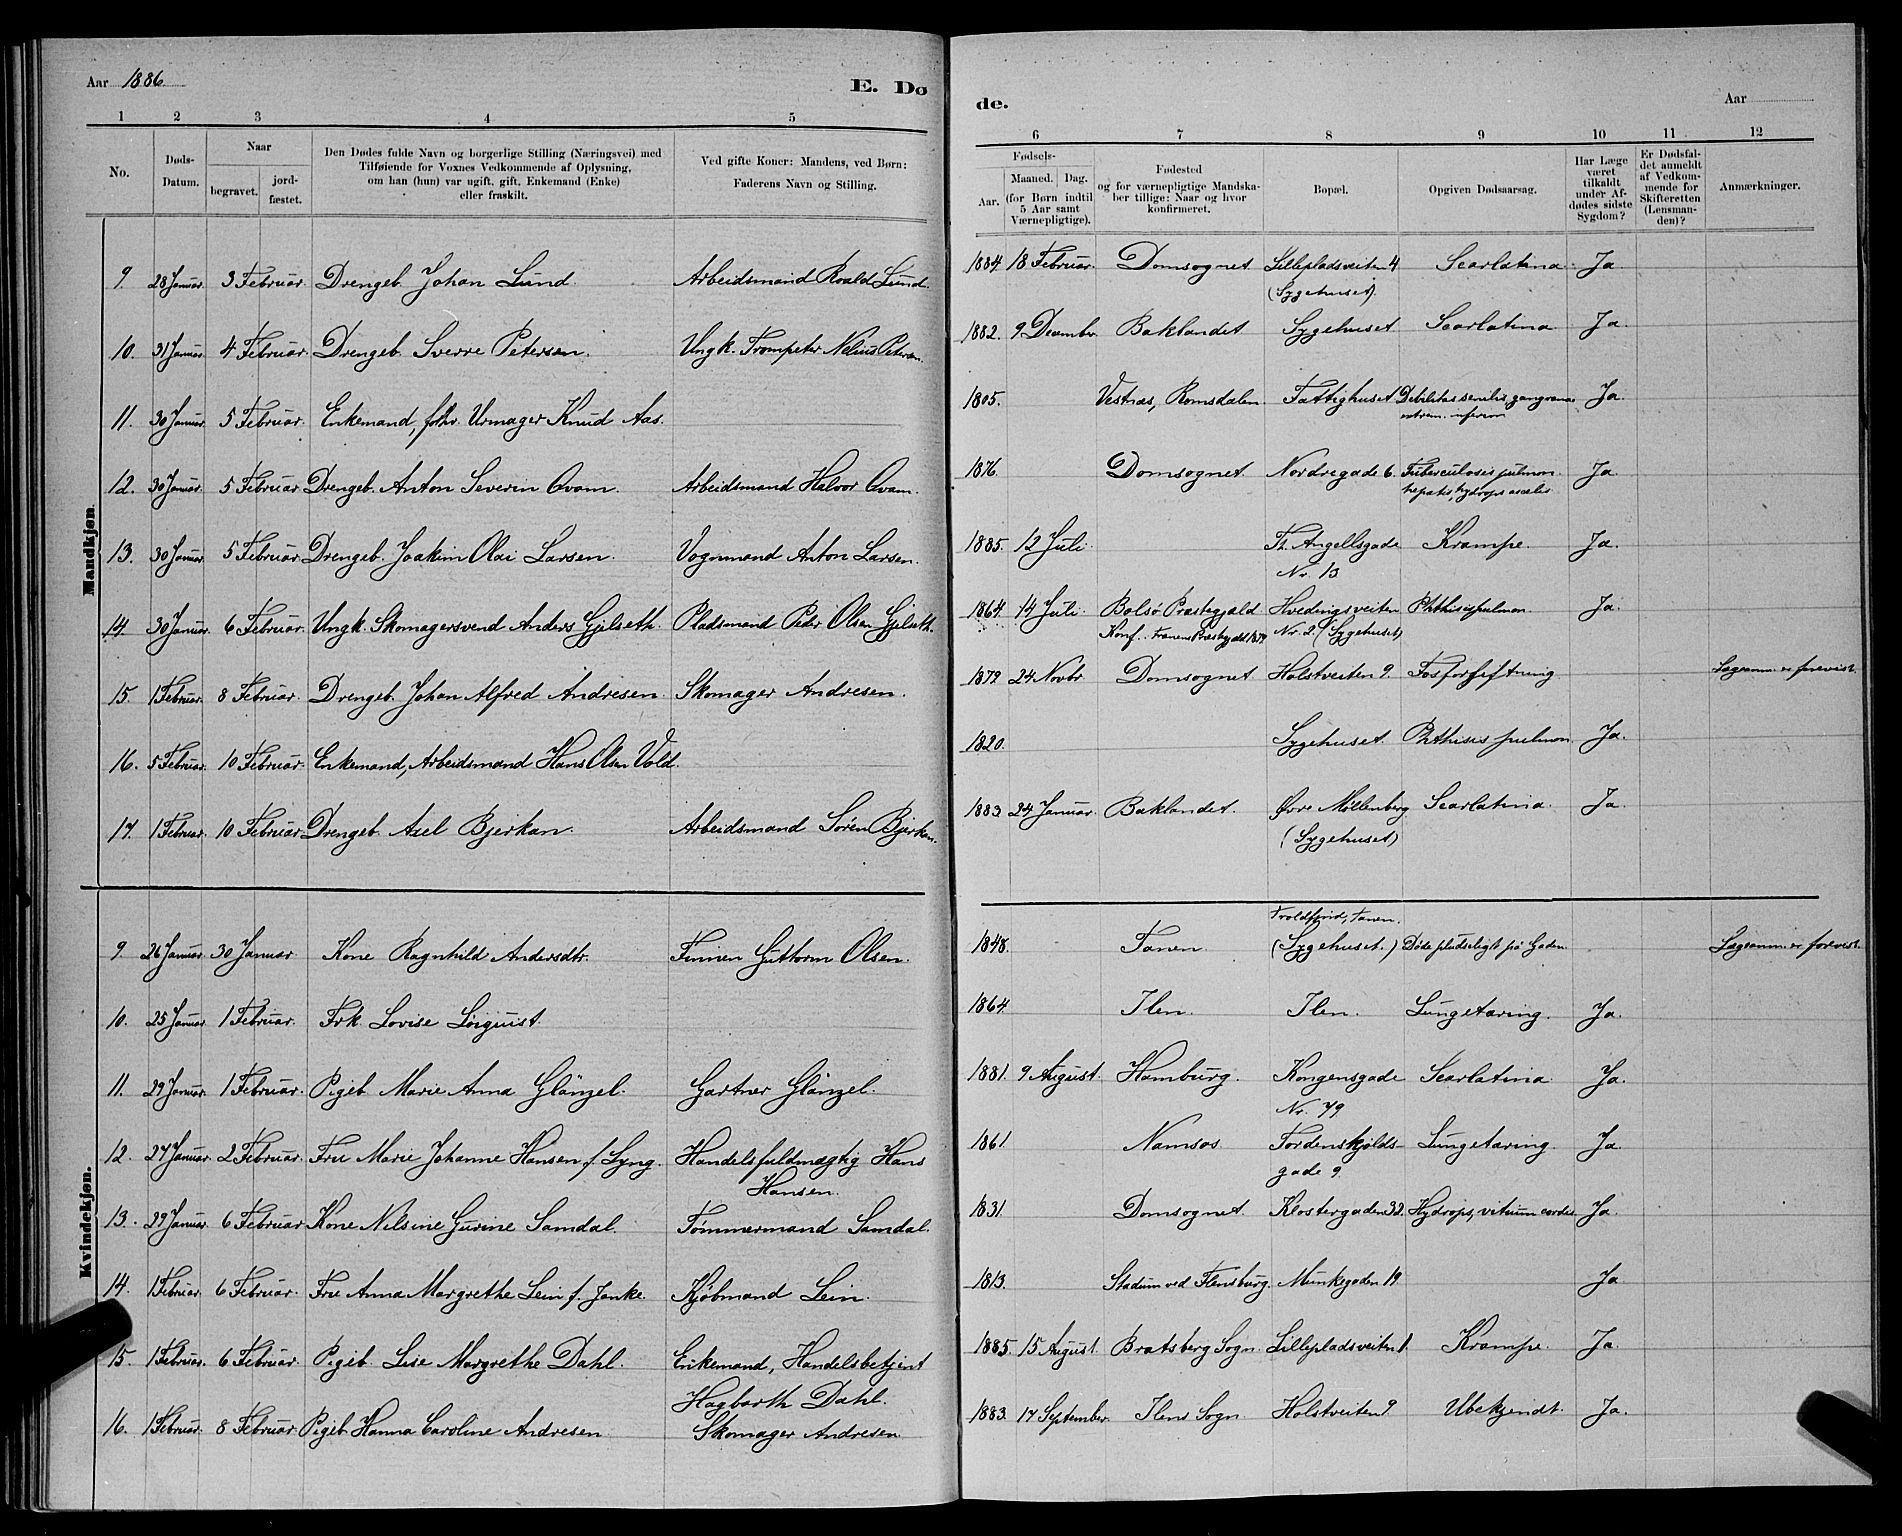 Aar 1886.
E. Dø
1 2 3 4 5
No.
Døds-
Datum.
Naar
begravet.
jord-
fæstet.
Den Dødes fulde Navn og borgerlige Stilling (Næringsvei) med
Tilføiende for Voxnes Vedkommende af Oplysning,
om han (hun) var ugift, gift, Enkemand (Enke)
eller fraskilt.
Ved gifte Koner: Mandens, ved Børn:
Faderens Navn og Stilling.
Mandkjøn.
9. 28 Januar. 3 Februar. Drengeb. Johan Lund. Arbeidsmand Roald Lund.
10. 31 Januar. 4 Februar. Drengeb. Sverre Petersen. Ungk. Trompeter Nelius Petersen.
11. 30 Januar. 5 Februar. Enkemand, fhv. Urmager Knud Aas.
12. 30 Januar. 5 Februar. Drengeb. Anton Severin Qvam. Arbeidsmand Halvor Qvam.
13. 30 Januar. 5 Februar. Drengeb. Joakim Olai Larsen. Vognmand Anton Larsen.
14. 30 Januar. 6 Februar. Ungk. Skomagersvend Anders Gjelseth. Pladsmand Peder Olsen Gjelseth.
15. 1 Februar. 8 Februar. Drengeb. Johan Alfred Andresen. Skomager Andresen.
16. 5 Februar. 10 Februar. Enkemand, Arbeidsmand Hans Olsen Vold.
17. 1 Februar. 10 Februar. Drengeb. Axel Bjerkan. Arbeidsmand Sören Bjerkan.
Kvindekjøn.
9. 26 Januar. 30 Januar. Kone Ragnhild Andersdtr. Finnen Guttorm Olsen.
10. 25 Januar. 1 Februar. Frk. Lovise Lörquist.
11. 29 Januar. 1 Februar. Pigeb. Marie Anna Glänzel. Gartner Glänzel.
12. 27 Januar. 2 Februar. Fru Marie Johanne Hansen f. Lyng. Handelsfuldmægtig Hans
Hansen.
13. 29 Januar. 6 Februar. Kone Nilsine Gurine Samdal. Tømmermand Samdal.
14. 1 Februar. 6 Februar. Fru Anna Margrethe Lein f. Janke. Kjøbmand Lein.
15. 1 Februar. 6 Februar. Pigeb. Lise Margrethe Dahl. Enkemand, Handelsbetjent
Hagbarth Dahl.
16. 1 Februar. 8 Februar. Pigeb. Hanna Caroline Andresen. Skomager Andresen.
de.
Aar
6 7 8 9 10 11 12
Fødsels-
Aar.
Maaned. Dag.
(for Børn indtil
5 Aar samt
Værnepligtige).
Fødested
og for værnepligtige Mandska-
ber tillige: Naar og hvor
konfirmeret.
Bopæl.
Opgiven Dødsaarsag.
Har Læge
været
tilkaldt
under Af-
dødes sidste
Sygdom?
Er Dødsfal-
det anmeldt
af Vedkom-
mende for
Skifteretten
(Lensman-
den)?
Anmærkninger.
1884. 18 Februar. Domsognet Lillepladsveiten 4 Scarlatina. Ja
(Sygehuset).
1882. 9 December. Baklandet Sygehuset Scarlatina Ja.
1805. Vestnæs, Romsdalen. Fattighuset Debilitas senilis gangræna Ja.
extrem. inferior
1876. Domsognet. Nordregade 6. Tuberculosis pulmon. Ja.
hepatis, hydrops
1885. 12 Juli. Th. Angellsgade Krampe. Ja.
Nr. 13
1864. 14 Juli. Bolsø Præstegjæld Hvedingsveiten Phthisis pulmon. Ja.
Konf. Fanens Præstegjæld 1879 Nr. 2. (Sygehuset)
1879. 24 Novbr. Domsognet Holstveiten 9. Fosforforgiftning Lægeanm. er forevist.
1820. Sygehuset. Phthisis pulmon. Ja.
1883. 24 Januar. Baklandet. Øvre Möllenberg Scarlatina. Ja.
(Sygehuset)
1848. Tanen. (Sygehuset.) Døde pludseligt på Gaden Lægeanm. er forevist.
1864. Ilen. Ilen. Lungetæring. Ja.
1881. 9 August. Hamburg. Kongensgade Scarlatina Ja.
Nr. 79
1861. Namsos. Tordenskjolds- Lungetæring. Ja
gade 9.
1831. Domsognet. Klostergaden 32. Hydrops, vitium cordis. Ja.
1813. Stadum ved Flensburg. Munkegaden 19 Ja
1885. 15 August. Bratsberg Sogn. Lillepladsveiten 1. Krampe. Ja.
1883. 17 September. Ilens Sogn Holstveiten 9 Ubekjendt. Ja.